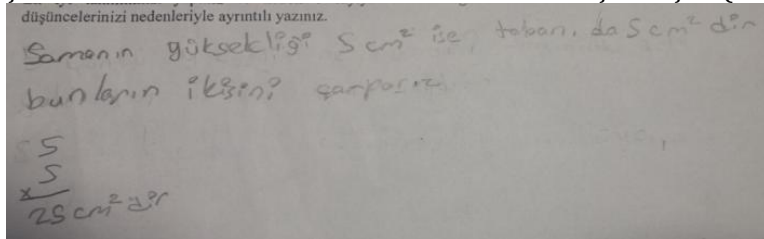 düşüncelerinizi nedenleriyle ayrıntılı yazınız.
Samanın yüksekliği 5 cm² ise tabanı da 5 cm² dir
bunların ikisini çarparız
5
5
x
25 cm² dir